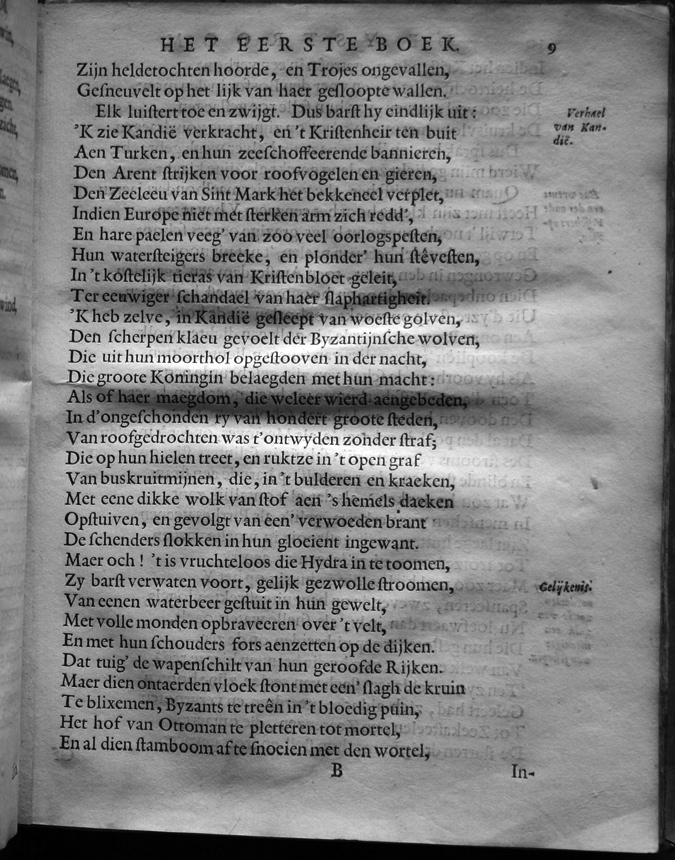 HET EERSTE BOEK. 9
Zijn heldetochten hoorde, en Trojes ongevallen,
Gesneuvelt op het lijk van haer gesloopte wallen.
Elk luistert toe en zwijgt. Dus barst hy eindlijk uit:
Verhael van Kandië.
'K zie Kandië verkracht, en 't Kristenheir ten buit
Aen Turken, en hun zeeschoffeerende bannieren,
Den Arent strijken voor roofvogelen en gieren,
Den Zeeleeu van Sint Mark het bekkeneel verplet,
Indien Europe niet met sterken arm zich redd',
En hare paelen veeg' van zoo veel oorlogspesten,
Hun watersteigers breeke, en plonder' hun stêvesten,
In 't kostelijk tieras van Kristenbloet geleit,
Ter eeuwiger schandael van haer slaphartigheit.
'K heb zelve, in Kandië gesleept van woeste golven,
Den scherpen klaeu gevoelt der Byzantijnsche wolven,
Die uit hun moorthol opgestooven in der nacht,
Die groote Koningin belaegden met hun macht:
Als of haer maegdom, die weleer wierd aengebeden,
In d'ongeschonden ry van hondert groote steden,
Van roofgedrochten was t'ontwyden zonder straf;
Die op hun hielen treet, en ruktze in 't open graf
Van buskruitmijnen, die, in 't bulderen en kraeken,
Met eene dikke wolk van stof aen 's hemels daeken
Opstuiven, en gevolgt van een' verwoeden brant
De schenders slokken in hun gloeient ingewant.
Maer och! 't is vruchteloos die Hydra in te toomen,
Zy barst verwaten voort, gelijk gezwolle stroomen,
Gelijkenis.
Van eenen waterbeer gestuit in hun gewelt,
Met volle monden opbraveeren over 't velt,
En met hun schouders fors aenzetten op de dijken.
Dat tuig' de wapenschilt van hun geroofde Rijken.
Maer dien ontaerden vloek stont met een' slagh de kruin
Te blixemen, Byzants te treên in 't bloedig puin,
Het hof van Ottoman te pletteren tot mortel,
En al dien stamboom af te snoeien met den wortel,
B In-